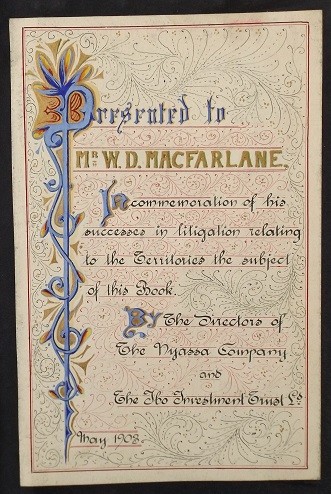 Presented to
MR. W. D. MACFARLANE,
In commemoration of his
successes in litigation relating
to the Territories the subject
of this Book.
By The Directors of
The Nyassa Company
and
The Ibo Investment Trust Ld
May 1908.